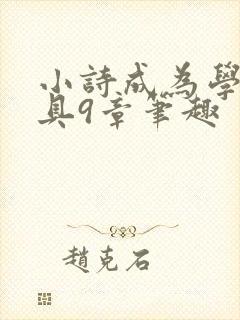 小詩成為學
具9章筆趣
趙克石